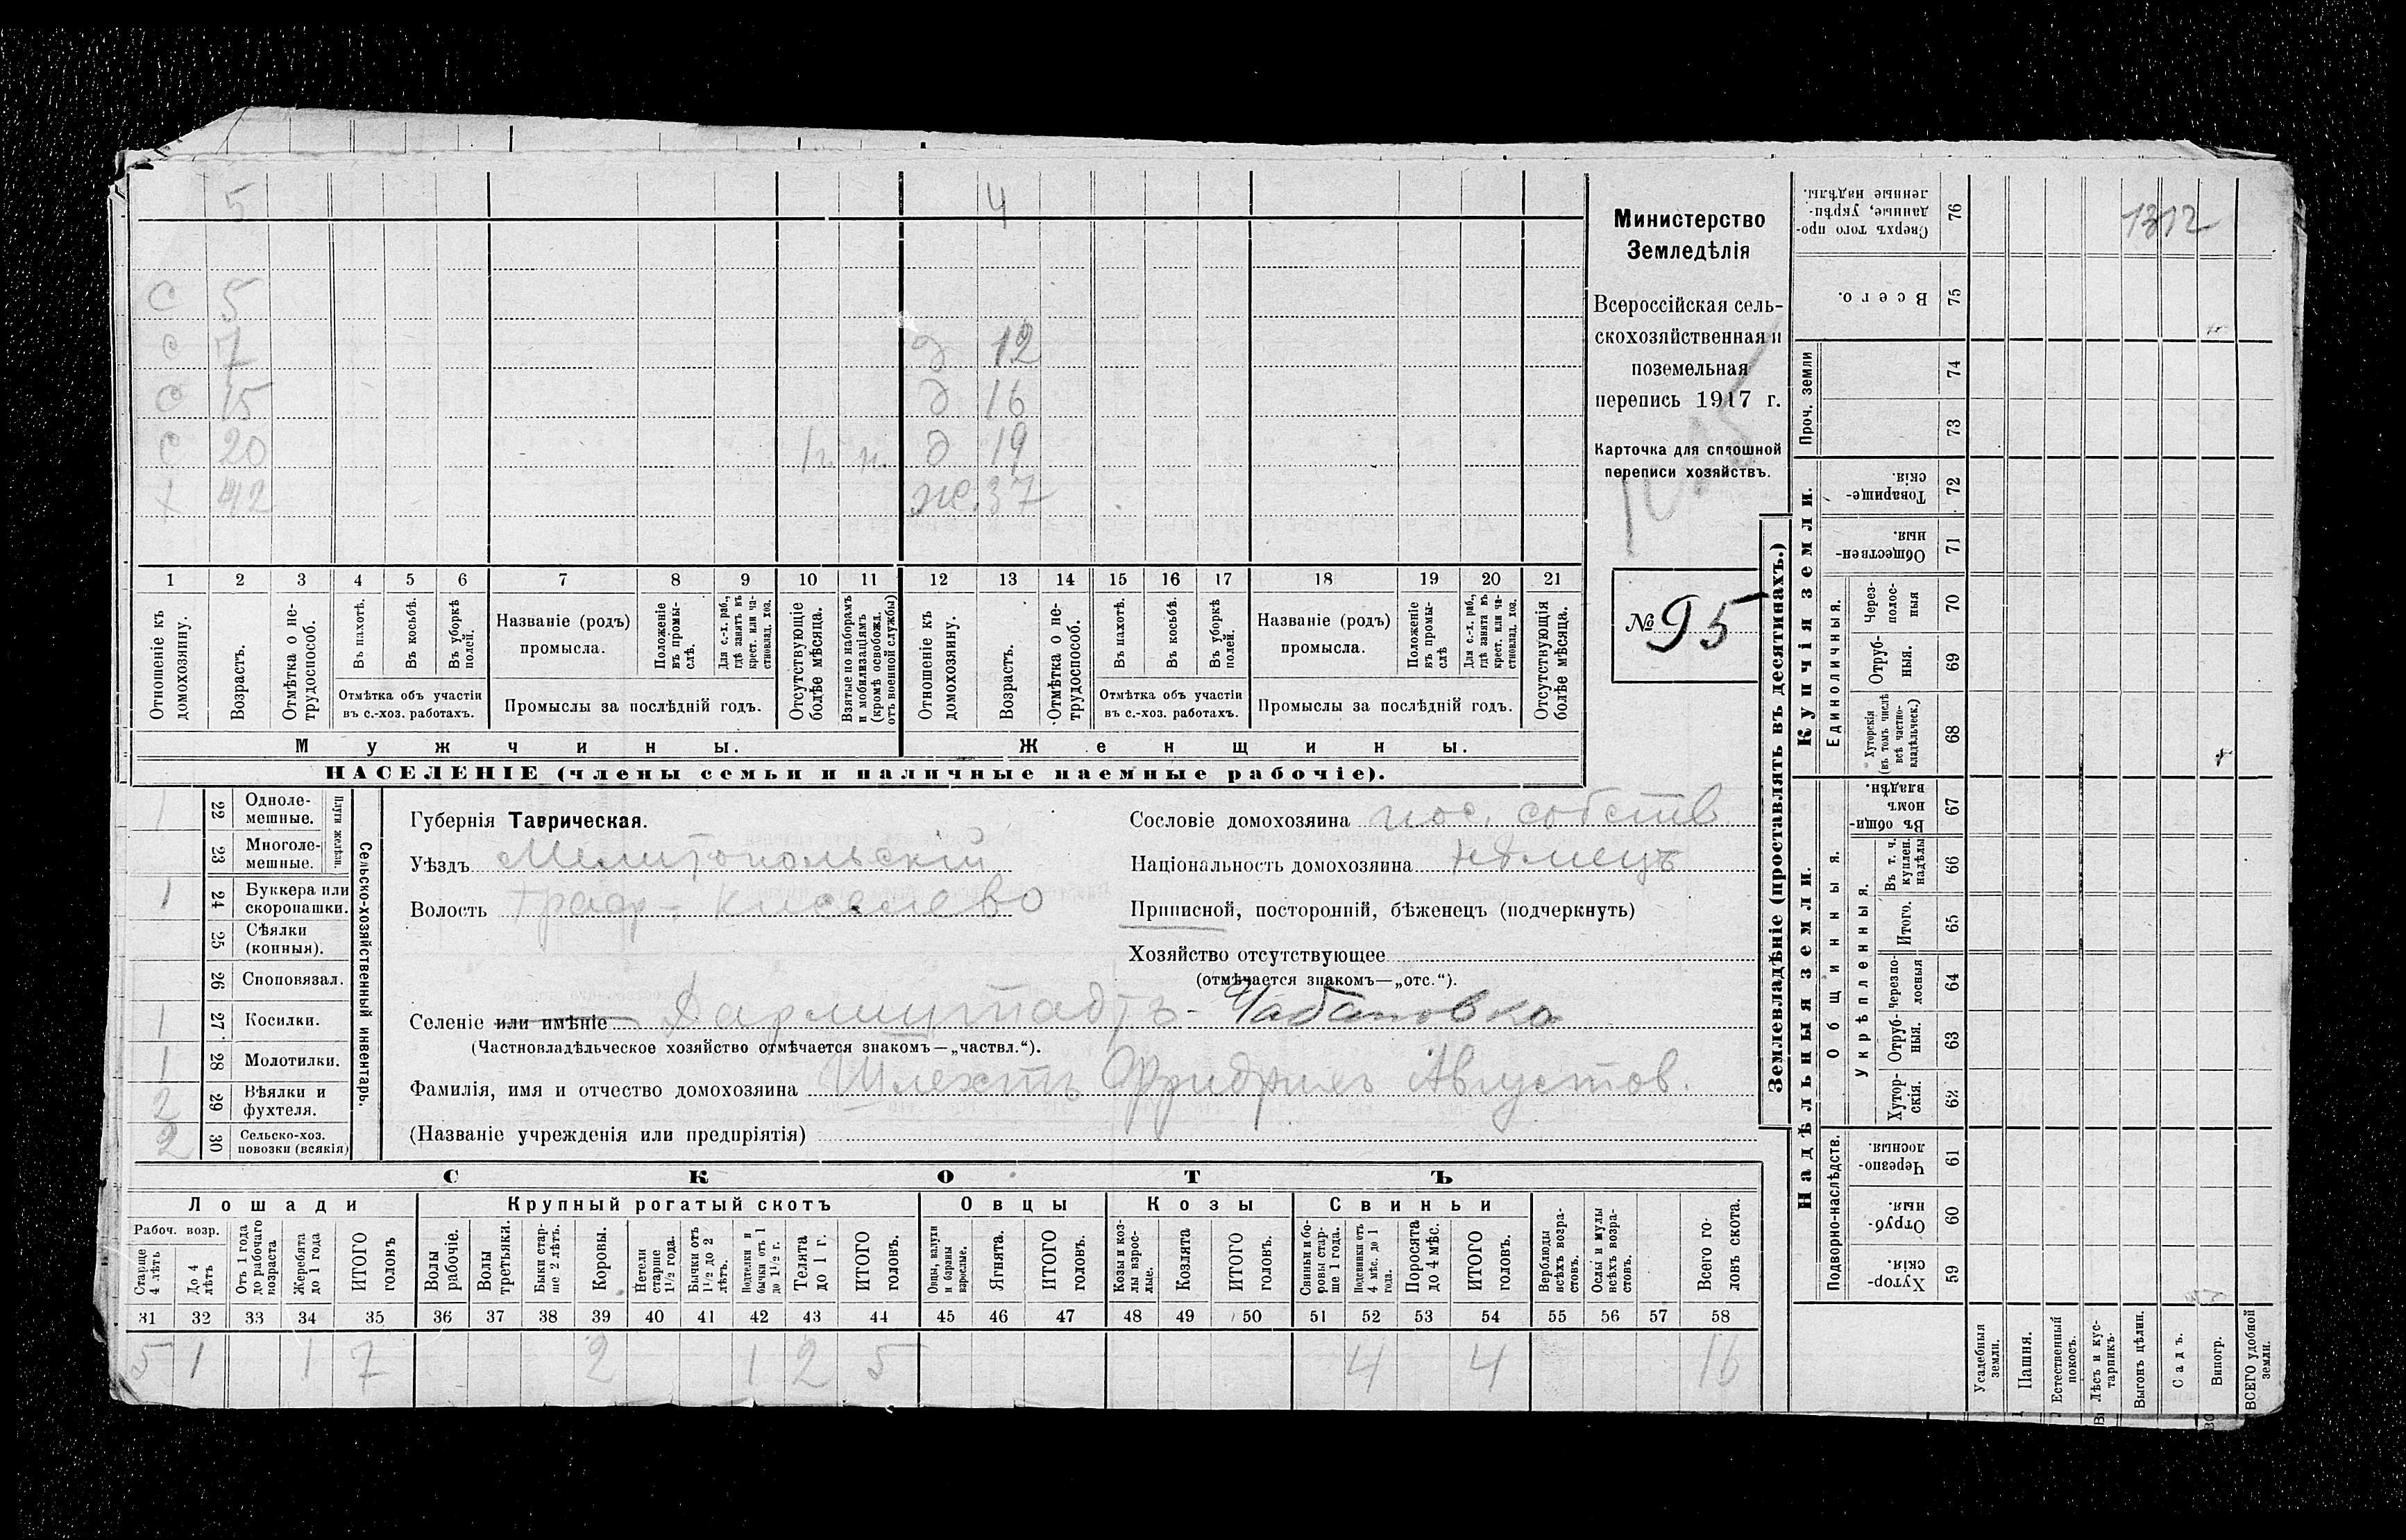 5 4
С 5
С 7 д 12
С 15 д 16
С 20 1 г. н. д 19
х 42 ж. 37
1 2 3 4 5 6 7 8 9 10 11 12 13 14 15 16 17 18 19 20 21
Отношеніе къ домохозяину.
Возрастъ.
Отмѣтка о не-трудоспособ.
Въ пахотѣ.
Въ косьбѣ.
Въ уборкѣ полей.
Отмѣтка объ участіи въ с.-хоз. работахъ.
Названіе (родъ) промысла.
Положеніе въ промы-слѣ.
Для с.-х. раб., гдѣ занятъ въ крест. или ча-стновлад. хоз.
Промыслы за послѣдній годъ.
Отсутствующіе болѣе мѣсяца.
Взятые по наборамъ и мобилизаціямъ (кромѣ освобожд. отъ военной службы)
Отношеніе къ домохозяину.
Возрастъ.
Отмѣтка о не-трудоспособ.
Въ пахотѣ.
Въ косьбѣ.
Въ уборкѣ полей.
Отмѣтка объ участіи въ с.-хоз. работахъ.
Названіе (родъ) промысла.
Положеніе въ промы-слѣ
Для с.-х. раб., гдѣ занята въ крест. или ча-стновлад. хоз.
Промыслы за послѣдній годъ.
Отсутствующія болѣе мѣсяца.
Мужчины. Женщины.
НАСЕЛЕНІЕ (члены семьи и наличные наемные рабочіе).
Министерство
Земледѣлія
Всероссійская сель-
скохозяйственная и
поземельная
перепись 1917 г.
Карточка для сплошной
переписи хозяйствъ.
№ 95
1 22 Одноле-мешные.
23 Многоле-мешные.
Плуги желѣзн.
1 24 Буккера или скоропашки.
25 Сѣялки (конныя).
26 Сноповязал.
1 27 Косилки.
1 28 Молотилки.
2 29 Вѣялки и фухтеля.
2 30 Сельско-хоз. повозки (всякія)
Сельско-хозяйственный инвентарь.
Губернія Таврическая.
Уѣздъ Мелитопольскій
Волость Граф-Киселево
Сословіе домохозяина пос. собств
Національность домохозяина нѣмецъ
Приписной, посторонній, бѣженецъ (подчеркнуть)
Хозяйство отсутствующее
(отмѣчается знакомъ—„отс.“).
Селеніе или имѣніе Дармштадтъ - Чабановка
(Частновладѣльческое хозяйство отмѣчается знакомъ—„частвл.“).
Фамилія, имя и отчество домохозяина Шлехтъ Фридрихъ Августов.
(Названіе учрежденія или предпріятія)
СКОТЪ
Лошади Крупный рогатый скотъ Овцы Козы Свиньи
Рабоч. возр.
Старше 4 лѣтъ
До 4 лѣтъ
Отъ 1 года до рабочаго возраста
Жеребята до 1 года
ИТОГО головъ
Волы рабочіе.
Волы третьяки.
Быки стар-ше 2 лѣтъ.
Коровы.
Нетели старше 1½ года.
Бычки отъ 1½ до 2 лѣтъ.
Подтелки и бычки отъ 1 до 1½ г.
Телята до 1 г.
ИТОГО головъ.
Овцы, валухи и бараны взрослые.
Ягнята.
ИТОГО головъ.
Козы и коз-лы взрос-лые.
Козлята
ИТОГО головъ.
Свиньи и бо-ровы стар-ше 1 года.
Подсвинки отъ 4 мѣс. до 1 года.
Поросята до 4 мѣс.
ИТОГО головъ.
Верблюды всѣхъ возра-стовъ.
Ослы и мулы всѣхъ возра-стовъ.
Всего го-ловъ скота.
31 32 33 34 35 36 37 38 39 40 41 42 43 44 45 46 47 48 49 50 51 52 53 54 55 56 57 58
5 1 1 7 2 1 2 5 4 4 16
Землевладѣніе (проставлять въ десятинахъ.)
Купчія земли.
Проч. земли
Сверхъ того про-данные, укрѣп-ленные надѣлы. 76
1312
Всего. 75
74
73
Товарище-скія. 72
Обществен-ныя. 71
Единоличныя.
Через-полос-ныя 70
Отруб-ныя. 69
Хуторскія (въ томъ числѣ всѣ частно-владѣльческ.) 68
Надѣльныя земли.
Общинныя.
Въ общи-номъ владѣн. 67
Укрѣпленныя.
Въ т. ч. куплен. надѣлы 66
Итого. 65
Черезпо-лосныя 64
Отруб-ныя. 63
Хутор-скія. 62
Подворно-наслѣдств.
Черезпо-лосныя. 61
Отруб-ныя. 60
Хутор-скія. 59
Усадебныя земли.
Пашня.
Естественный покосъ.
Лѣсъ и кус-тарникъ.
Выгонъ цѣлин.
Садъ.
Виногр.
ВСЕГО удобной земли.